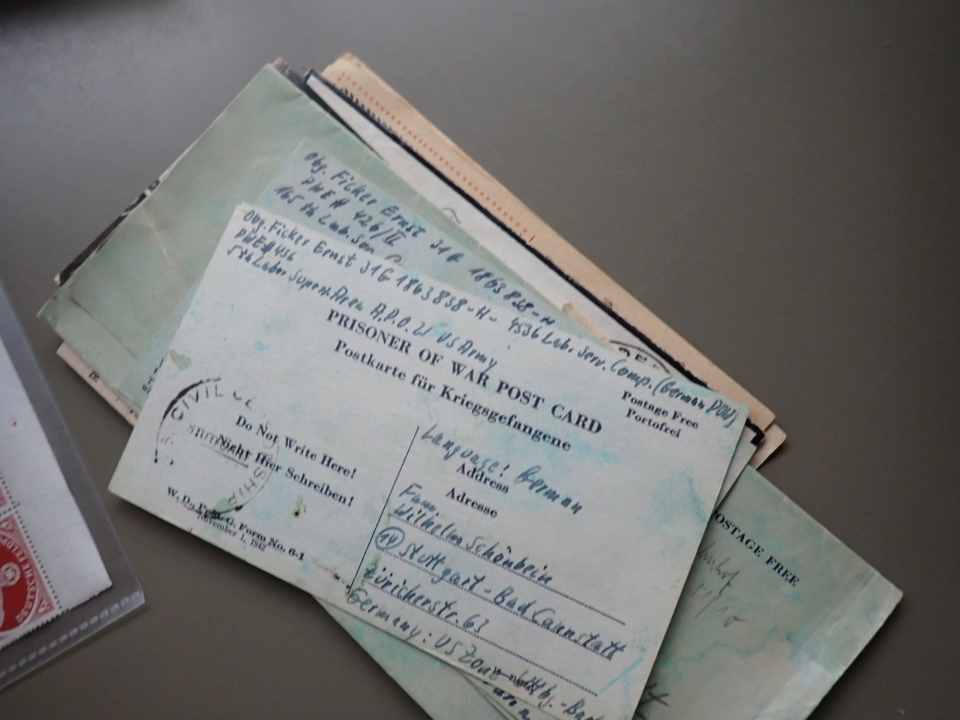 Obg. Ficker Ernst 31G 1863838-H
PWE# 426/II
165 th Lab. Ser.
Obg. Ficker Ernst 31G 1863838-H- 4536 Lab. Serv. Comp. (German POW)
PWE# 456
5th Labor Superv. Area A.P.O. 21 US Army
PRISONER OF WAR POST CARD
Postkarte für Kriegsgefangene
Postage Free
Portofrei
CIVIL CE
SHIP
Do Not Write Here!
Nicht Hier Schreiben!
W. D., P.M.G. Form No. 6-1
November 1, 1942
Language: German
Address
Adresse
Fam.
Wilhelm Schönbein
(14) Stuttgart-Bad Cannstatt
Züricherstr. 63
Germany: US Zone
POSTAGE FREE